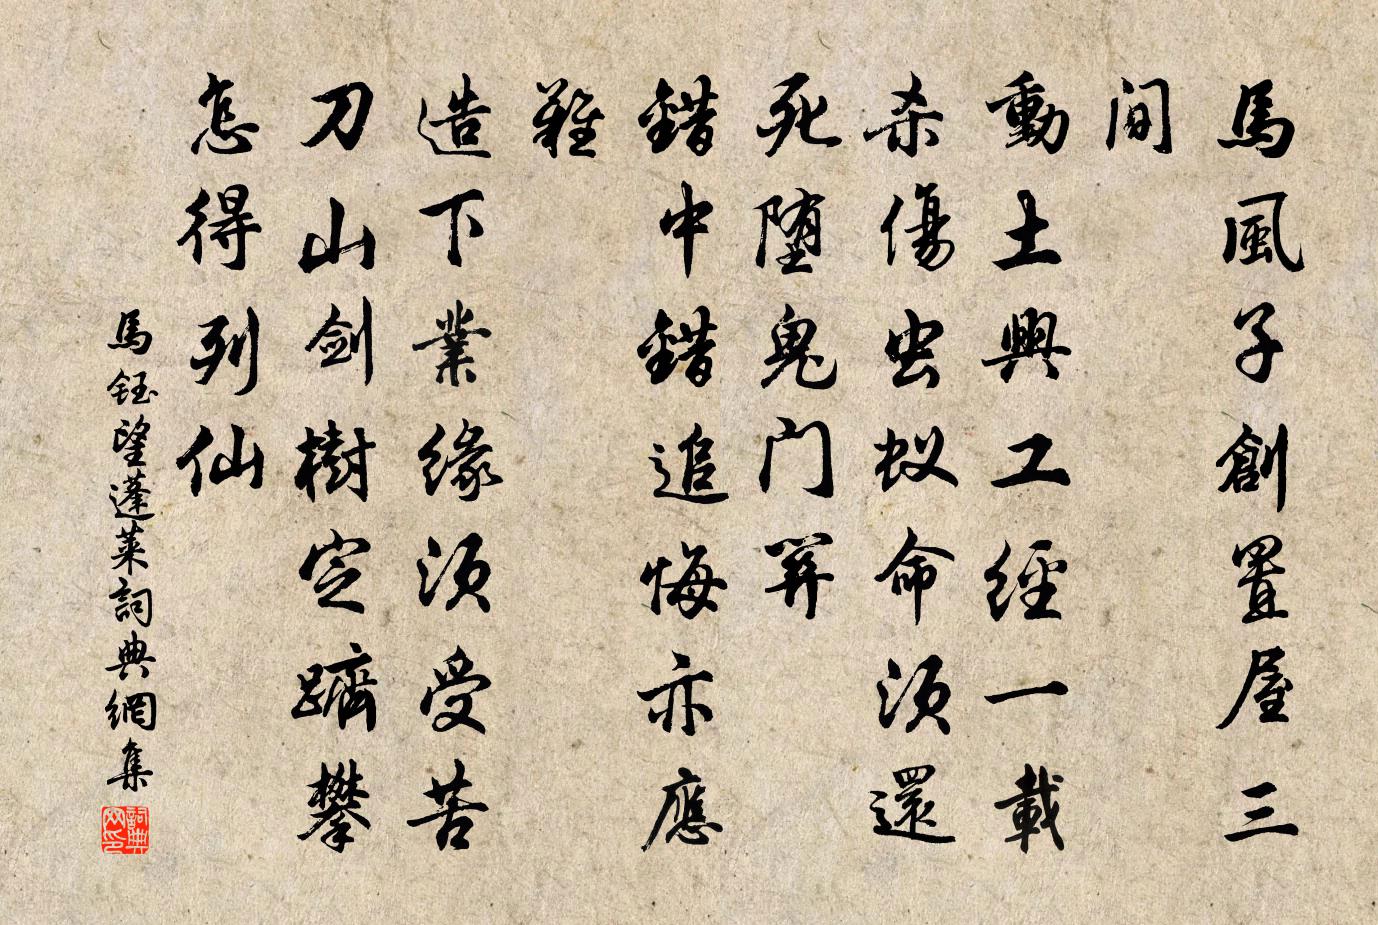 馬風子創置屋三
間
動土興工經一載
杀傷虫蚁命須還
死堕鬼门关
錯中錯追悔亦應
難
造下業緣須受苦
刀山劍樹定躋攀
怎得列仙
馬鈺望蓬萊詞典網集
詞典
网印